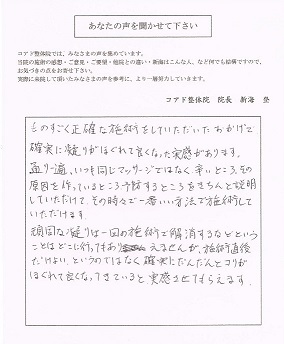 あなたの声を聞かせて下さい
コアド整体院では、みなさまの声を集めています。
当院の施術の感想・ご意見・ご要望・他院との違い・新海はこんな人、など何でも結構ですので、
お気づきの点をお寄せ下さい。
実際に来院して頂いたみなさまの声を参考に、より一層努力していきます。
コアド整体院 院長 新海 登
ものすごく正確な施術をしていただいたおかげで
確実に凝りがほぐれて良くなった実感があります。
通り一遍、いつも同じマッサージではなく、辛いところ、その
原因を作っているところ、予防するところをきちんと説明
していただけて、その時々で一番いい方法で施術して
いただけます。
頑固な凝りは一回の施術で解消するなどという
ことはどこに行ってもありえませんが、施術直後
だけよい、というのではなく確実にだんだんとコリが
ほぐれて良くなってきていると実感させてもらえます。